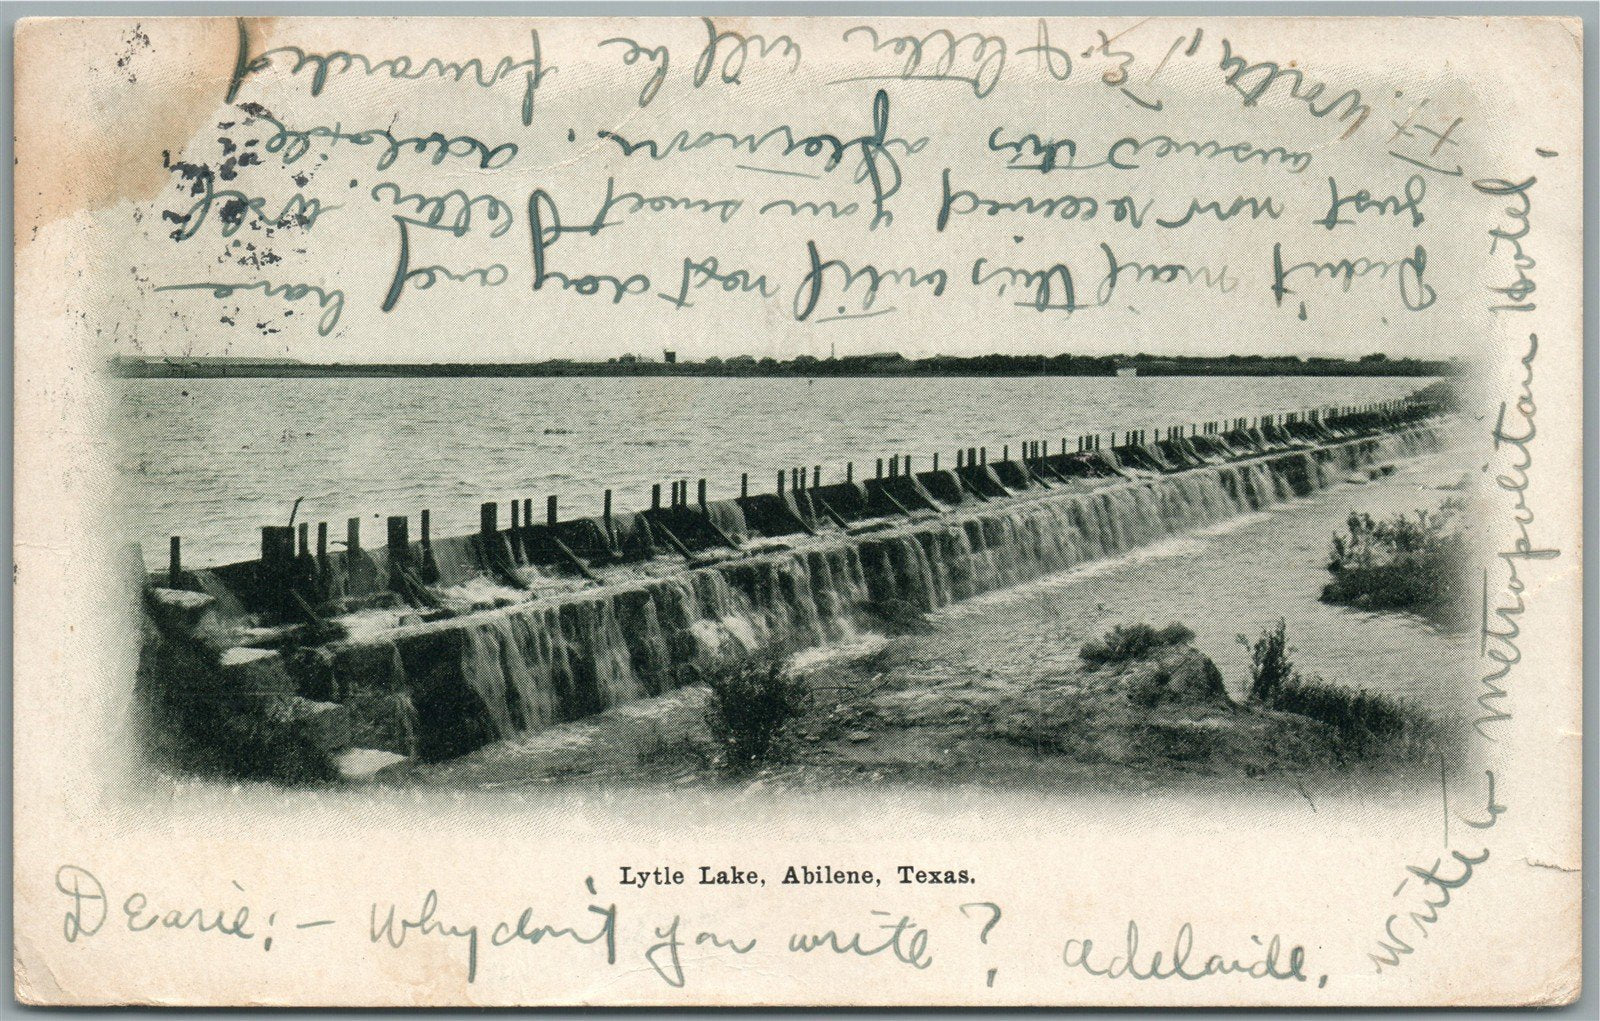 Lytle Lake, Abilene, Texas.
Dearie:- Why don't you write? Adelaide.
Write to Metropolitan Hotel,
Ft. Worth, & letter will be forwarded
Didn't mail this until next day and have
just now received your sweet letter. Will
answer this afternoon. Adelaide